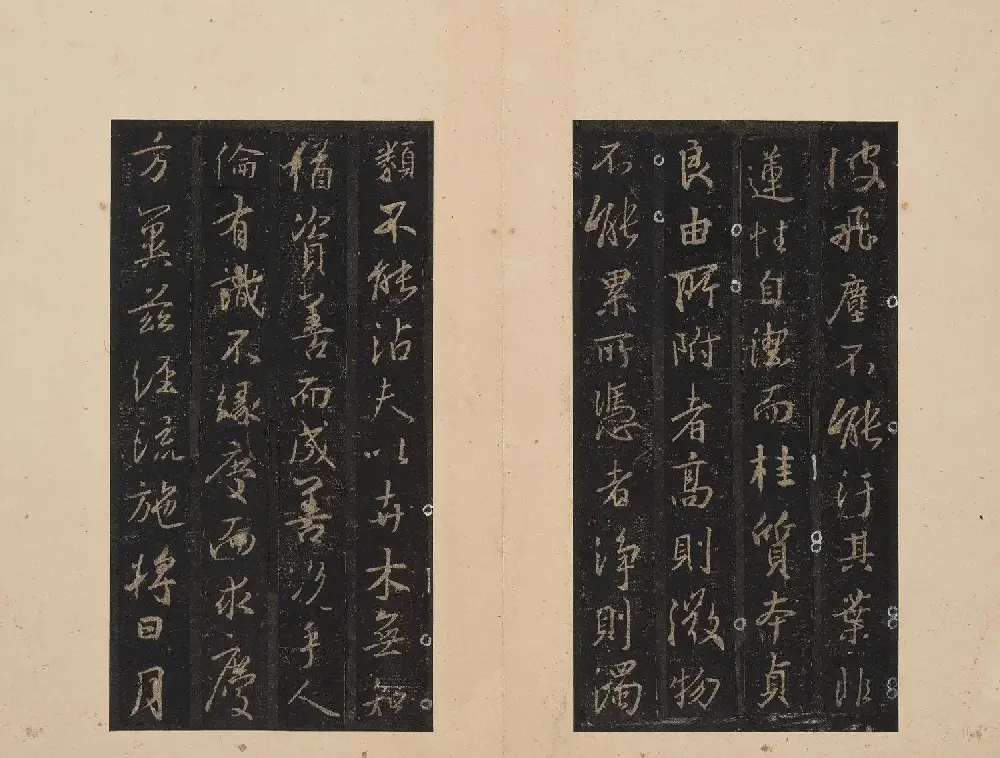 波飛塵不能汙其葉非
蓮性自潔而桂質本貞
良由所附者高則微物
不能累所憑者淨則濁
類不能沾夫以卉木無知
猶資善而成善況乎人
倫有識不緣慶而求慶
方冀茲經流施將日月